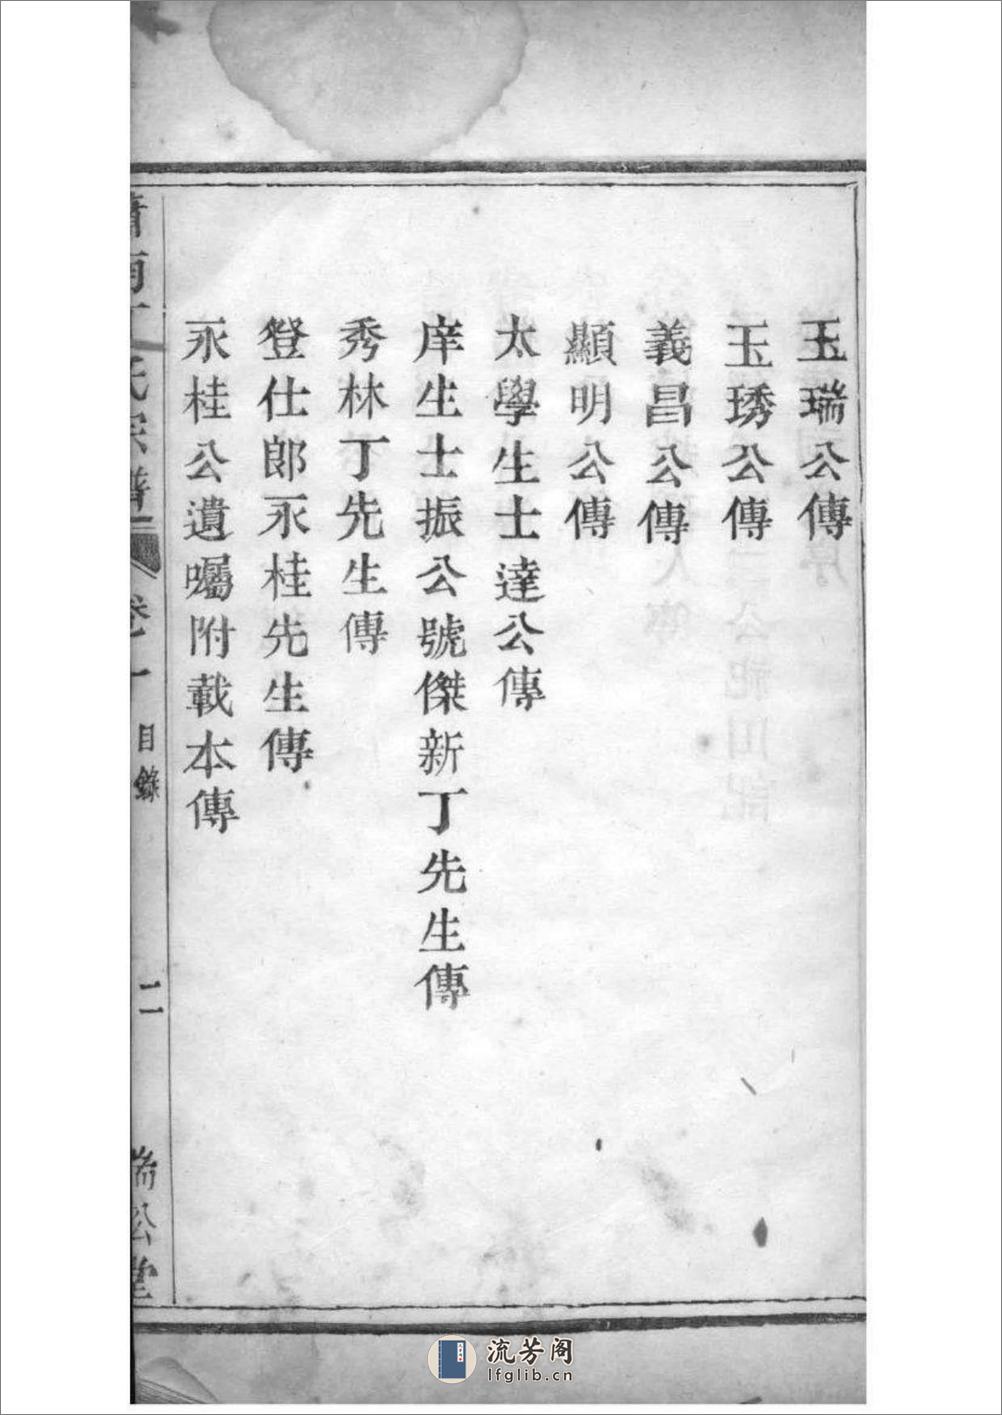 玉瑞公傳
玉琇公傳
義昌公傳
顯明公傳
太學生士達公傳
庠生士振公號傑新丁先生傳
秀林丁先生傳
登仕郎永桂先生傳
永桂公遺囑附載本傳
氏宗譜 卷一 目錄 二 堂
流芳阁
lfglib.cn